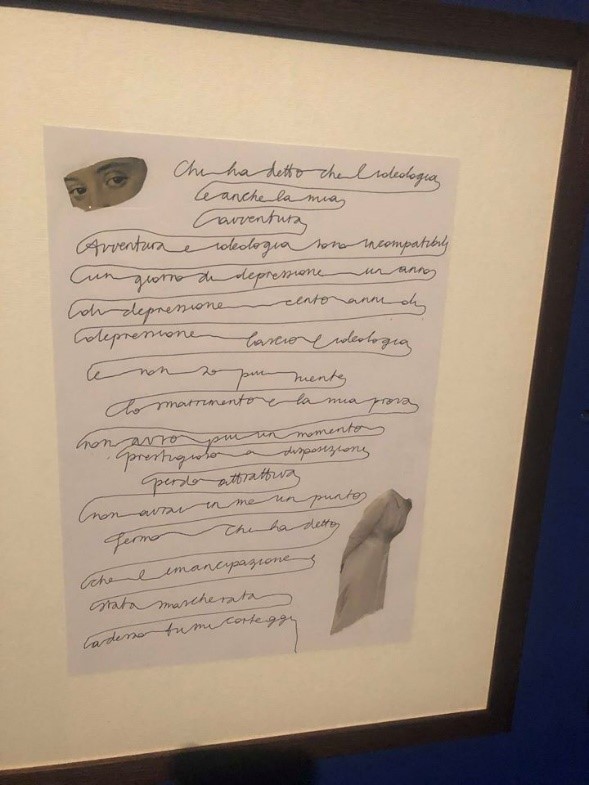 Chi ha detto che l ideologia
e anche la mia
avventura
Avventura e ideologia sono incompatibili
un giorno di depressione un anno
di depressione cento anni di
depressione lascio l ideologia
e non so piu niente
lo smarrimento e la mia prova
non avro piu un momento
prestigioso a disposizione
perdo attrattiva
non avrai in me un punto
fermo Chi ha detto
che l emancipazione
stata mascherata
adesso tu mi corteggi